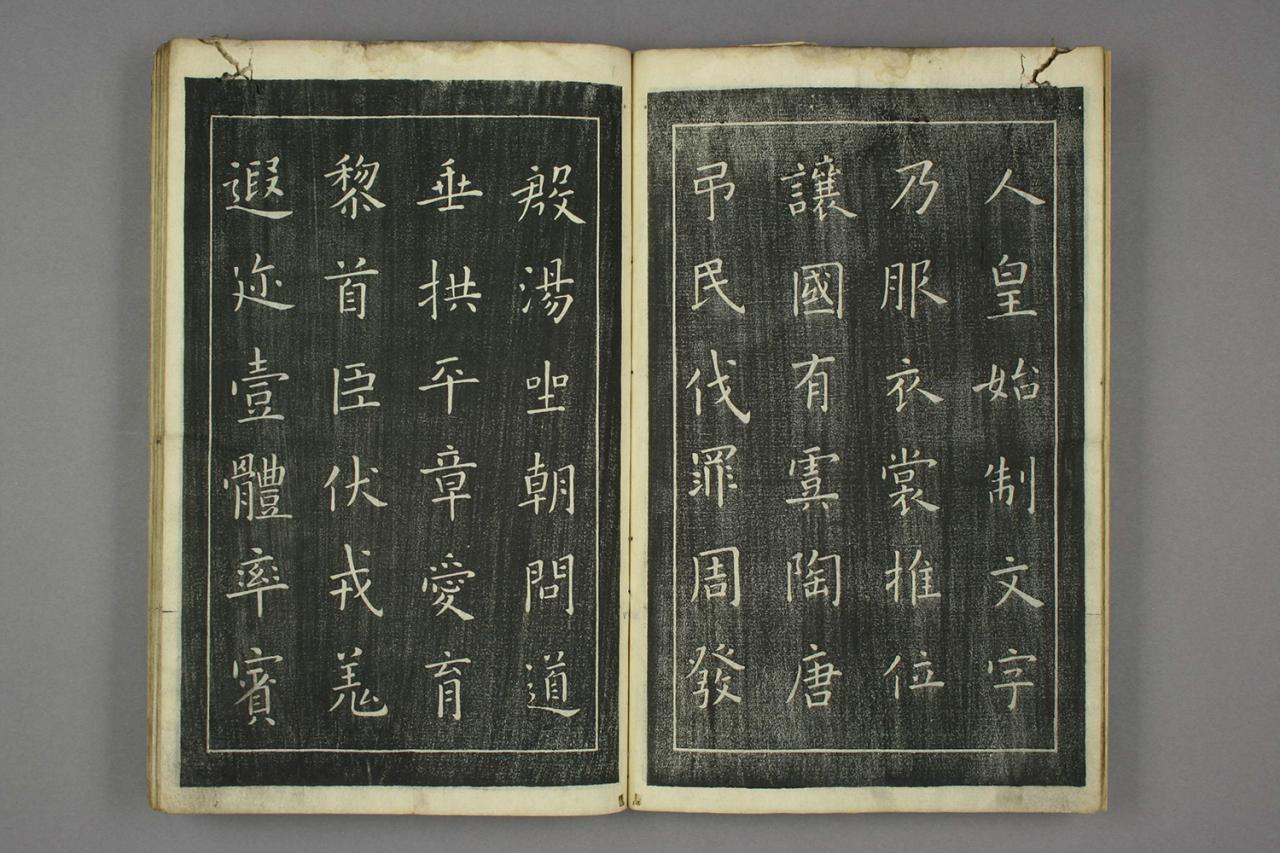 人皇始制文字
乃服衣裳推位
讓國有虞陶唐
弔民伐罪周發
殷湯坐朝問道
垂拱平章愛育
黎首臣伏戎羌
遐迩壹體率賓